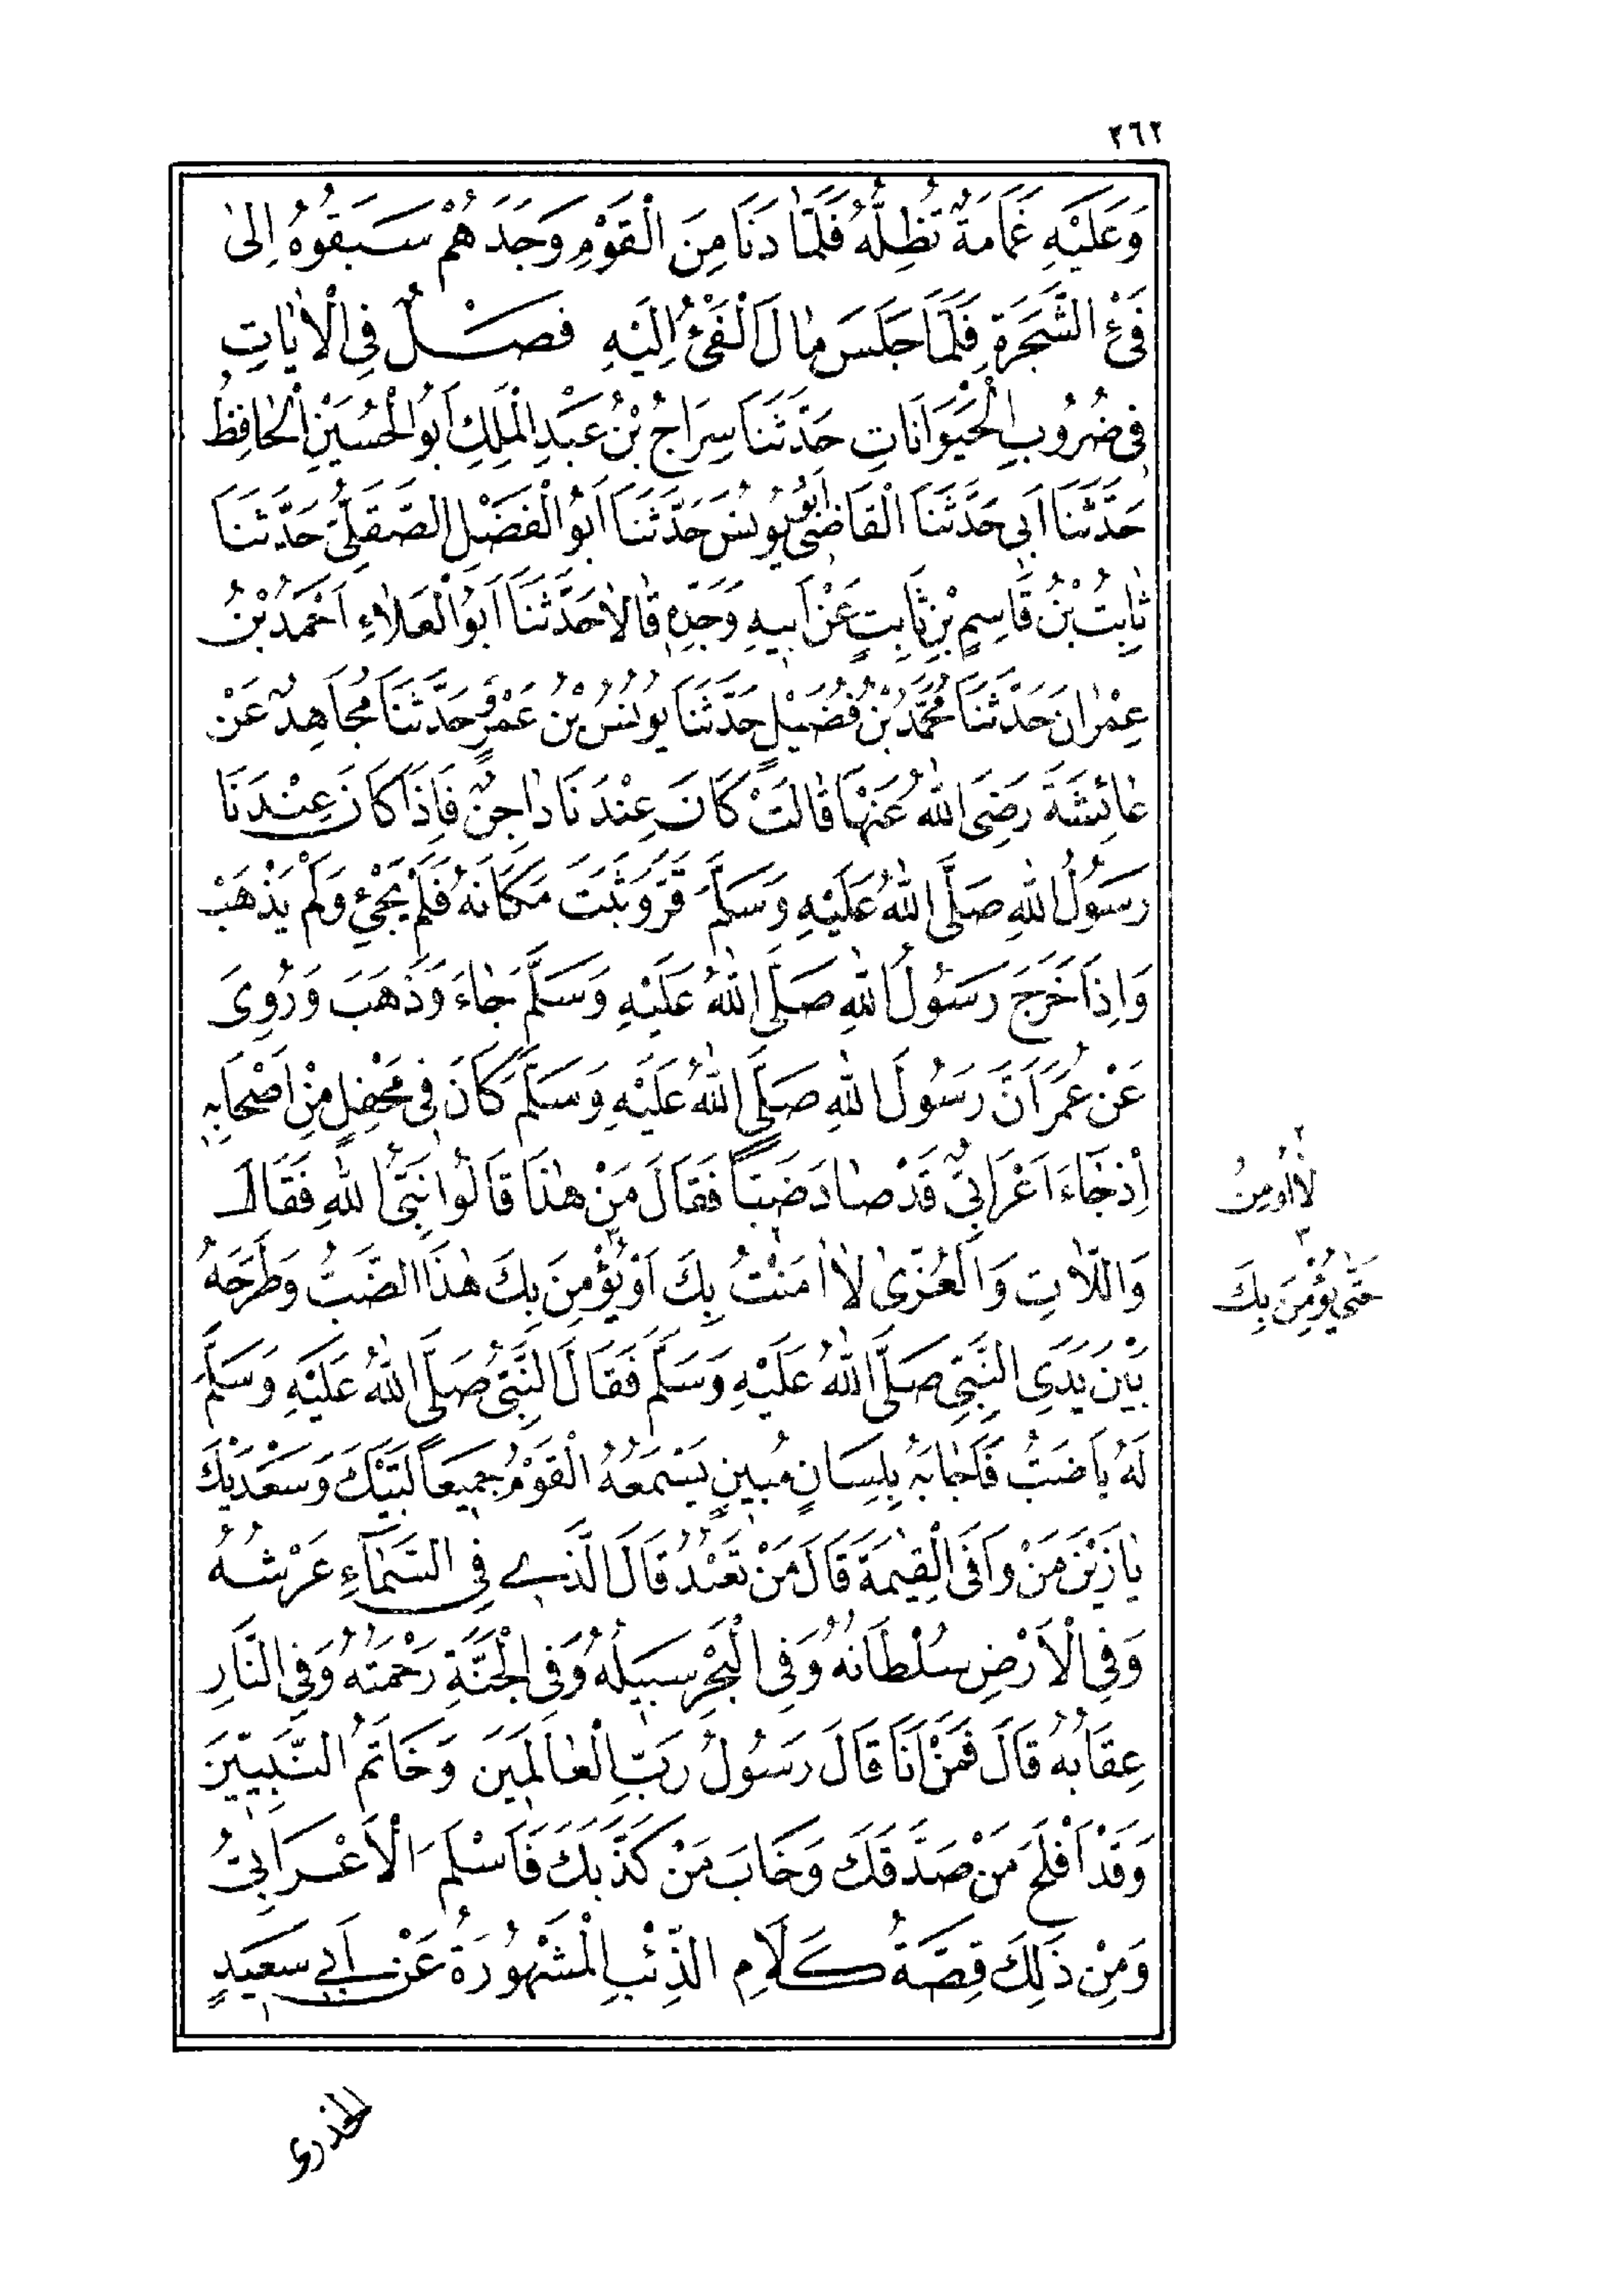 ٢٦٢
وَعَلَيْهِ غَمَامَةٌ تُظِلُّهُ فَلَمَّا دَنَا مِنَ الْقَوْمِ وَجَدَهُمْ سَبَقُوهُ اِلىٰ
فَىْءِ الشَّجَرَةِ فَلَمَّا جَلَسَ مٰالَ الْفَىْءُ اِلَيْهِ فَصْلٌ فِى الْاٰيٰاتِ
فِى ضُرُوبِ الْحَيَوَانَاتِ حَدَّثَنَا سِرَاجُ بْنُ عَبْدِ الْمَلِكِ اَبُو الْحُسَيْنِ الْحَافِظُ
حَدَّثَنَا اَبِى حَدَّثَنَا الْقَاضِى اَبُو يُونُسَ حَدَّثَنَا اَبُو الْفَضْلِ الصَّقَلِّىُّ حَدَّثَنَا
ثٰابِتُ بْنُ قَاسِمِ بْنِ ثَابِتٍ عَنْ اَبِيهِ وَجَدِّهِ قٰالاٰ حَدَّثَنَا اَبُو الْعَلاٰءِ اَحْمَدُ بْنُ
عِمْرٰانَ حَدَّثَنَا مُحَمَّدُ بْنُ فُضَيْلٍ حَدَّثَنَا يُونُسُ بْنُ عَمْرٍو حَدَّثَنَا مُجَاهِدٌ عَنْ
عٰائِشَةَ رَضِىَ اللّٰهُ عَنْهَا قٰالَتْ كَانَ عِنْدَنَا دٰاجِنٌ فَاِذَا كَانَ عِنْدَنَا
رَسُولُ اللّٰهِ صَلَّى اللّٰهُ عَلَيْهِ وَسَلَّمَ قَرَّ وَثَبَتَ مَكَانَهُ فَلَمْ يَجِئْ وَلَمْ يَذْهَبْ
وَاِذَا خَرَجَ رَسُولُ اللّٰهِ صَلَّى اللّٰهُ عَلَيْهِ وَسَلَّمَ جٰاءَ وَذَهَبَ وَرُوِىَ
عَنْ عُمَرَ اَنَّ رَسُولَ اللّٰهِ صَلَّى اللّٰهُ عَلَيْهِ وَسَلَّمَ كَانَ فِى مَحْفِلٍ مِنْ اَصْحَابِهِ
اِذْ جَاءَ اَعْرَابِىٌّ قَدْ صٰادَ ضَبّاً فَقَالَ مَنْ هٰذَا قَالُوا نَبِىُّ اللّٰهِ فَقَالَ
وَاللّاٰتِ وَالْعُزّىٰ لاٰ اٰمَنْتُ بِكَ اَوْ يُؤْمِنَ بِكَ هٰذَا الضَّبُّ وَطَرَحَهُ
بَيْنَ يَدَىِ النَّبِىِّ صَلَّى اللّٰهُ عَلَيْهِ وَسَلَّمَ فَقَالَ النَّبِىُّ صَلَّى اللّٰهُ عَلَيْهِ وَسَلَّمَ
لَهُ يٰا ضَبُّ فَاَجٰابَهُ بِلِسَانٍ مُبِينٍ يَسْمَعُهُ الْقَوْمُ جَمِيعاً لَبَّيْكَ وَسَعْدَيْكَ
يٰا زَيْنَ مَنْ وَافَى الْقِيٰمَةَ قَالَ مَنْ تَعْبُدُ قَالَ الَّذِى فِى السَّمٰآءِ عَرْشُهُ
وَفِى الْاَرْضِ سُلْطَانُهُ وَفِى الْبَحْرِ سَبِيلُهُ وَفِى الْجَنَّةِ رَحْمَتُهُ وَفِى النَّارِ
عِقَابُهُ قَالَ فَمَنْ اَنَا قَالَ رَسُولُ رَبِّ الْعٰالَمِينَ وَخَاتَمُ النَّبِيّينَ
وَقَدْ اَفْلَحَ مَنْ صَدَّقَكَ وَخَابَ مَنْ كَذَّبَكَ فَاَسْلَمَ الْاَعْرَابِىُّ
وَمِنْ ذٰلِكَ قِصَّةُ كَلَامِ الذِّئْبِ الْمَشْهُورَةُ عَنْ اَبِى سَعِيدٍ
٢
لاٰ اُومِنُ
٣
حَتّٰى يُؤْمِنَ بِكَ
الخذرى